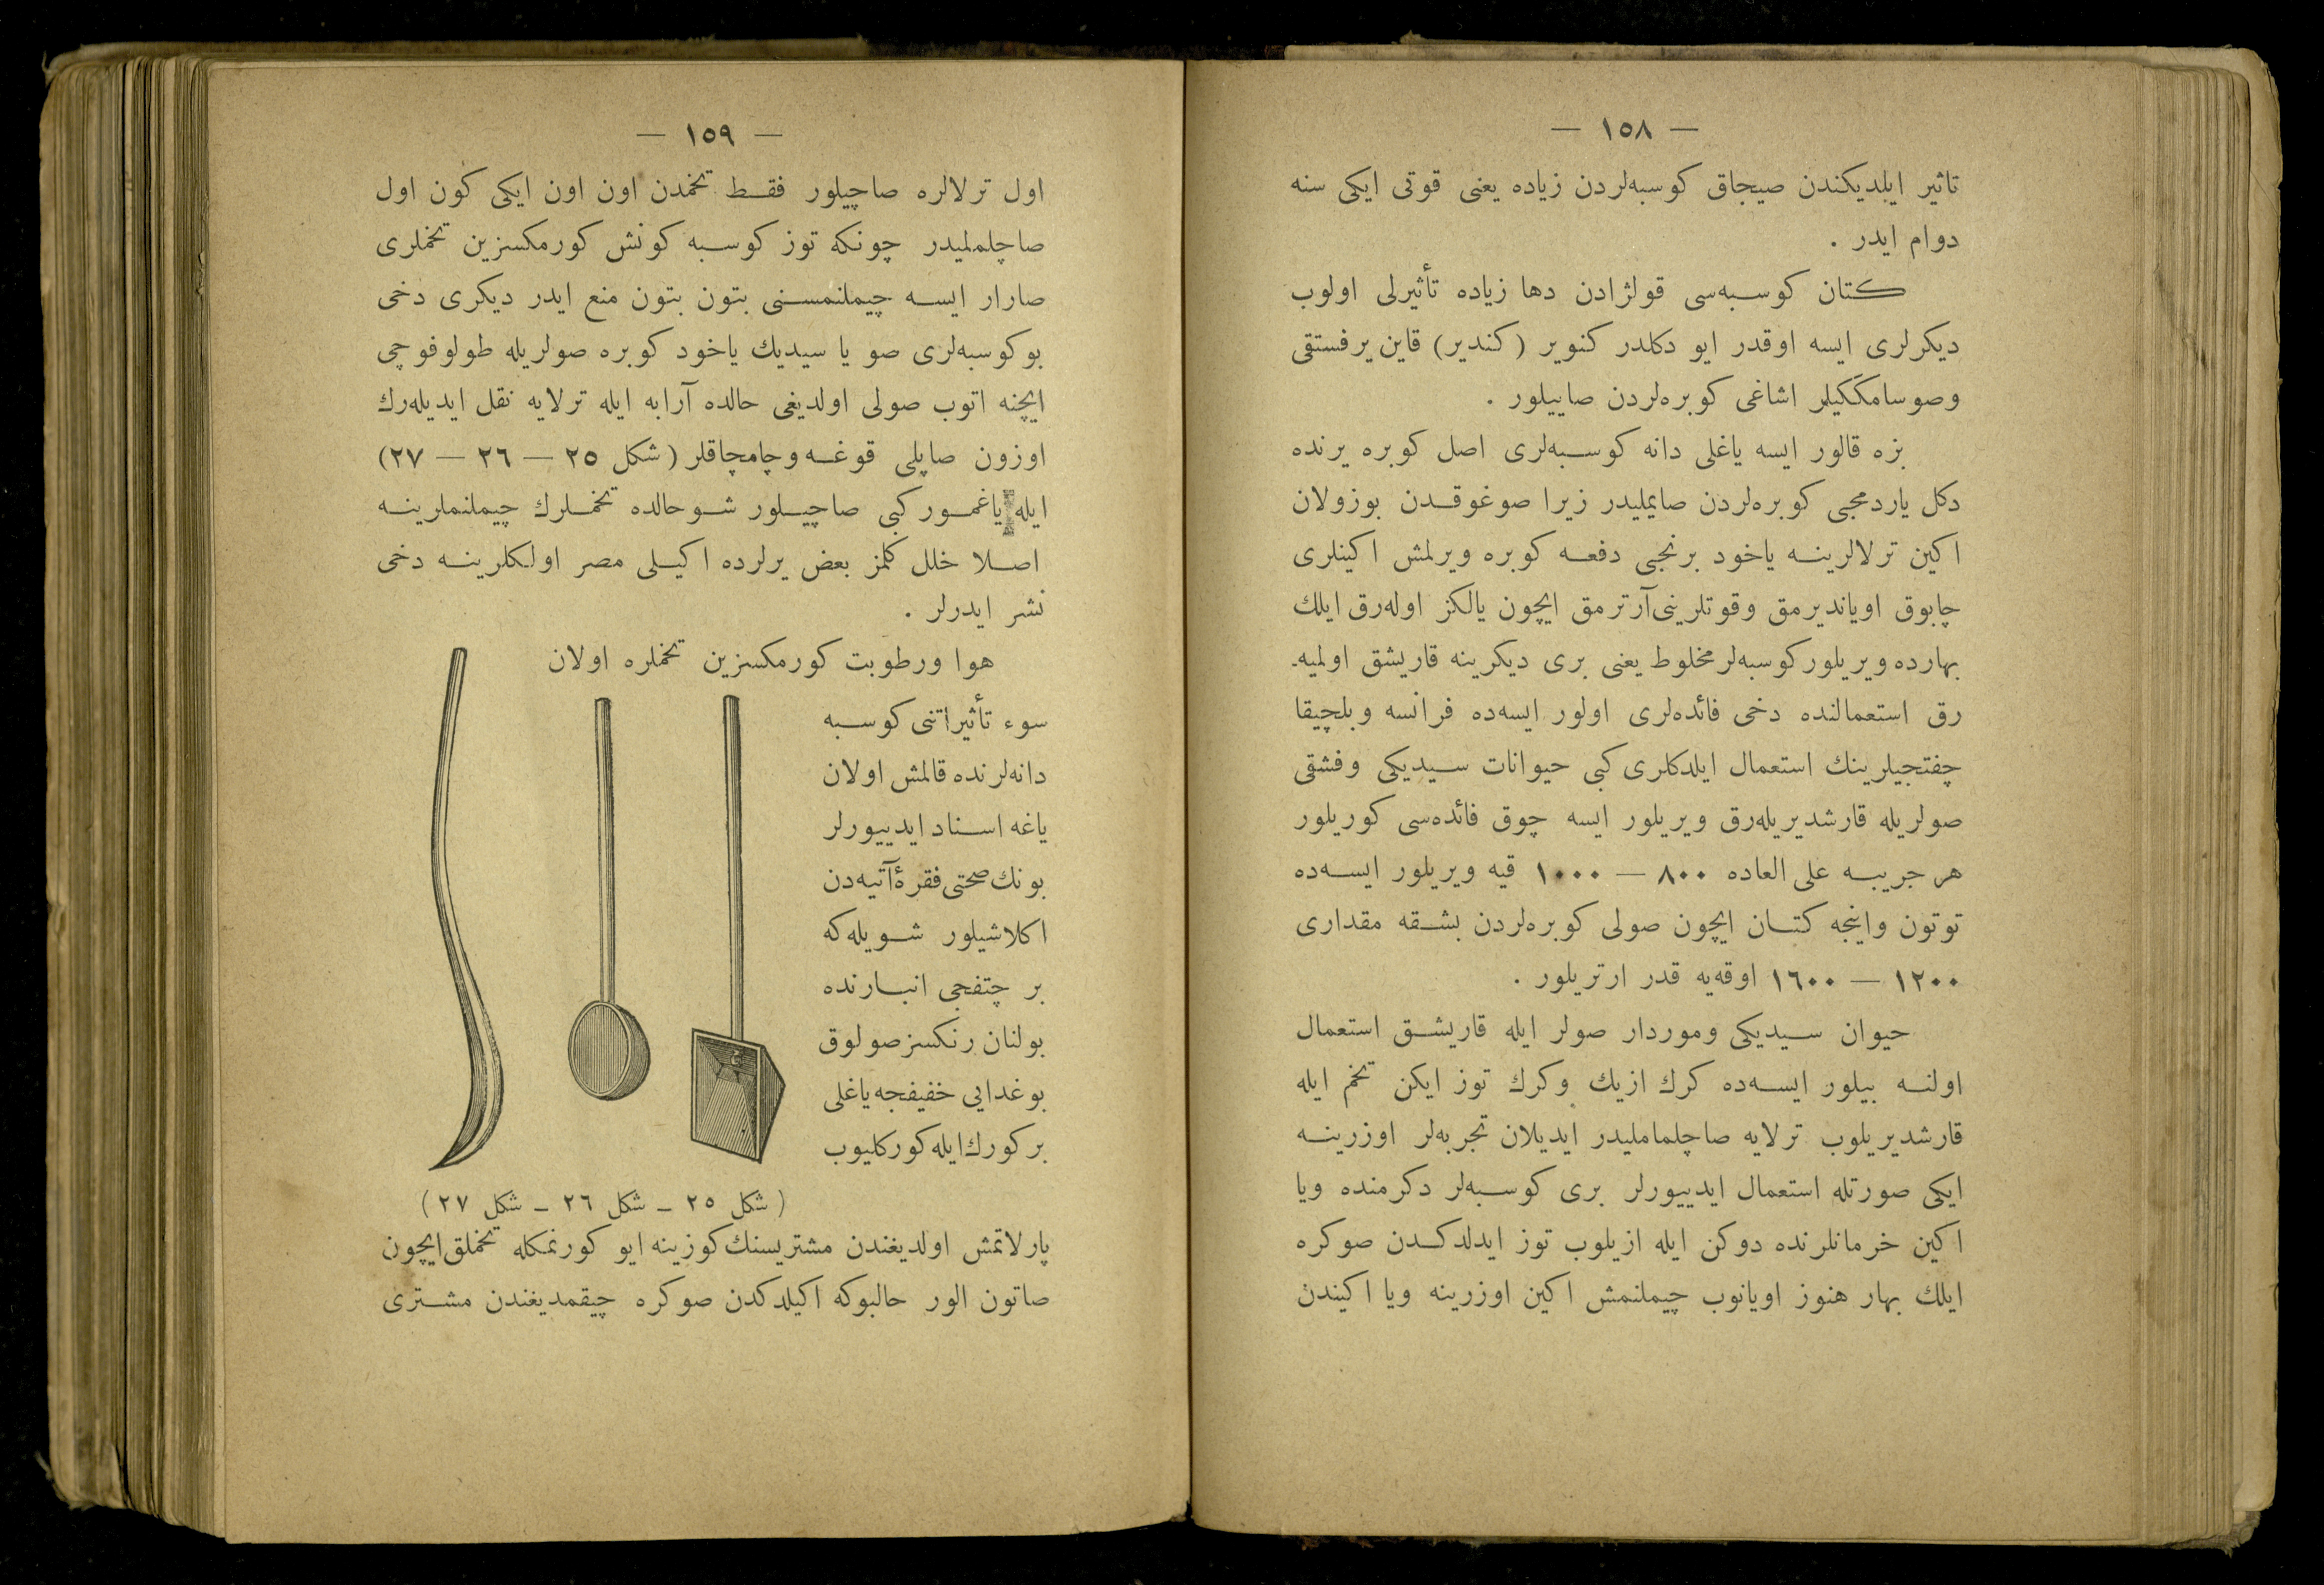 — ١٥٨ —
تاثیر ایلدیکندن صیجاق كوسبه‌لردن زیاده یعنی قوتی ایکی سنه
دوام ایدر .
كتان كوسبه‌سی قولزادن دها زیاده تأثیرلی اولوب
دیکرلری ایسه اوقدر ایو دکلدر کنویر (کندیر) قاین یرفستقی
وصوسامککیلر اشاغی کوبره‌لردن صاییلور .
بزه قالور ایسه یاغلی دانه كوسبه‌لری اصل كوبره یرنده
دکل یاردمجی کوبره‌لردن صایملیدر زیرا صوغوقدن بوزولان
اکین ترلالرینه یاخود برنجی دفعه کوبره ویرلمش اکینلری
چابوق اویاندیرمق وقوتلرینی آرترمق ایچون یالکز اوله‌رق ایلك
بهارده ویریلور کوسبه‌لر مخلوط یعنی بری دیکرینه قاریشق اولمیه‌ـ
رق استعمالنده دخی فائده‌لری اولور ایسه‌ده فرانسه وبلچیقا
چفتجیلرینك استعمال ایلدکلری کبی حیوانات سیدیکی وفشقی
صولریله قارشدیریله‌رق ویریلور ایسه چوق فائده‌سی کوریلور
هر جریبه علی العاده ٨٠٠ — ١٠٠٠ قیه ویریلور ایسه‌ده
توتون واینجه کتان ایچون صولی کوبره‌لردن بشقه مقداری
١٢٠٠ — ١٦٠٠ اوقه‌یه قدر ارتریلور .
حیوان سیدیکی وموردار صولر ایله قاریشق استعمال
اولنه بیلور ایسه‌ده کرك ازیك وکرك توز ایکن تخم ایله
قارشدیریلوب ترلایه صاچلماملیدر ایدیلان تجربه‌لر اوزرینه
ایکی صورتله استعمال ایدییورلر بری کوسبه‌لر دکرمنده ویا
اکین خرمانلرنده دوکن ایله ازیلوب توز ایدلدکدن صوکره
ایلك بهار هنوز اویانوب چیملنمش اکین اوزرینه ویا اکیندن
— ١٥٩ —
اول ترلالره صاچیلور فقط تخمدن اون اون ایکی کون اول
صاچلملیدر چونکه توز کوسبه کونش کورمکسزین تخملری
صارار ایسه چیملنمسنی بتون بتون منع ایدر دیکری دخی
بو کوسبه‌لری صو یا سیدیك یاخود کوبره صولریله طولوفوچی
ایچنه اتوب صولی اولدیغی حالده آرابه ایله ترلایه نقل ایدیله‌رك
اوزون صاپلی قوغه وچامچاقلر (شکل ٢٥ — ٢٦ — ٢٧)
ایله یاغمور کبی صاچیلور شو حالده تخملرك چیملنملرینه
اصلا خلل کلمز بعض یرلرده اکیلی مصر اولکلرینه دخی
نشر ایدرلر .
هوا ورطوبت کورمکسزین تخملره اولان
سوء تأثیراتنی کوسبه
دانه‌لرنده قالمش اولان
یاغه اسناد ایدییورلر
بونك صحتی فقرۀ آتیه‌دن
اکلاشیلور شویله‌که
بر چتفجی انبارنده
بولنان رنکسز صولوق
بوغدایی خفیفجه یاغلی
بر کورك ایله کورکلیوب
(شکل ٢٥ – شکل ٢٦ – شکل ٢٧)
پارلاتمش اولدیغندن مشتریسنك کوزینه ایو کورنمکله تخملق ایچون
صاتون الور حالبوکه اکیلدکدن صوکره چیقمدیغندن مشتری